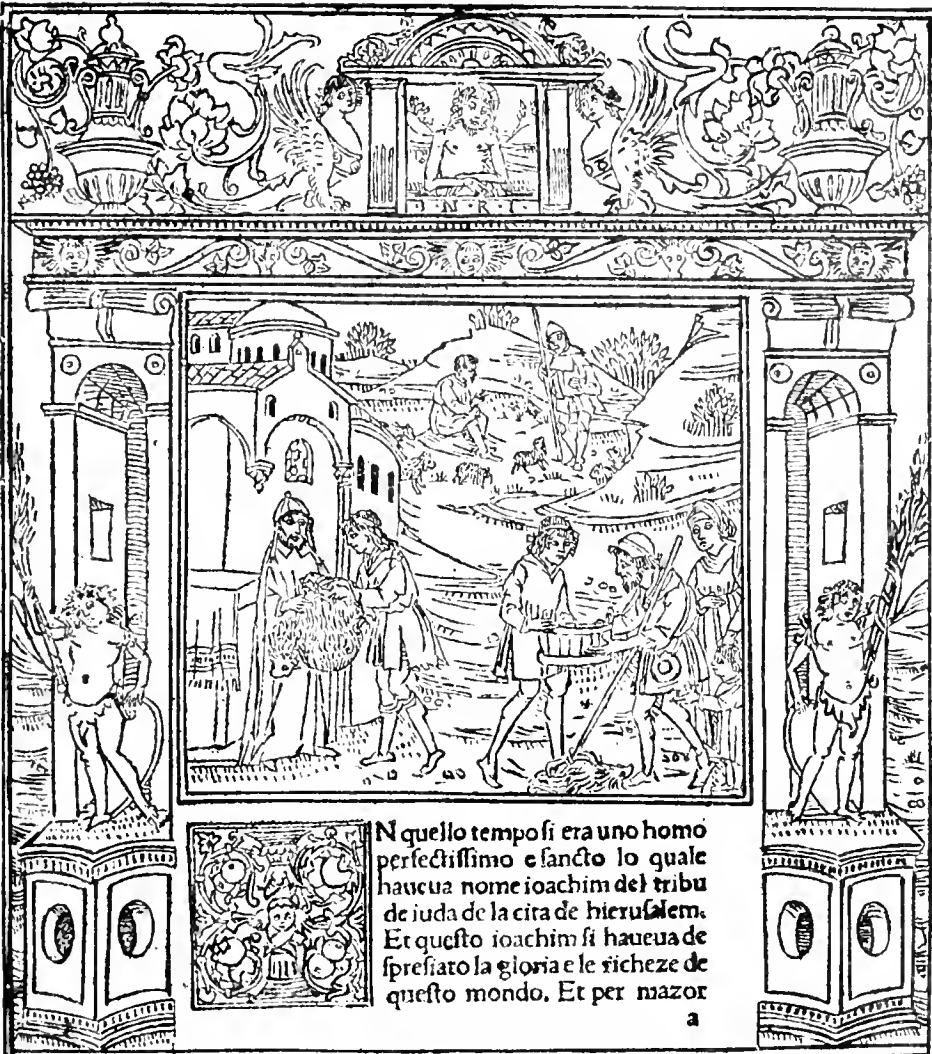 I N R I
N quello tempo ſi era uno homo
perfectiſſimo e ſancto lo quale
haueua nome ioachim del tribu
de iuda de la cita de hieruſalem.
Et queſto ioachim ſi haueua de
ſpreſiato la gloria e le richeze de
queſto mondo. Et per mazor
a